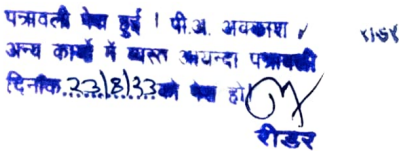 पत्रावली पेश हुई । पी.अ. अवकाश /
अन्य कार्यो में व्यस्त आयन्दा पत्रावली
दिनांक 23/8/33 को पेश हो
रीडर